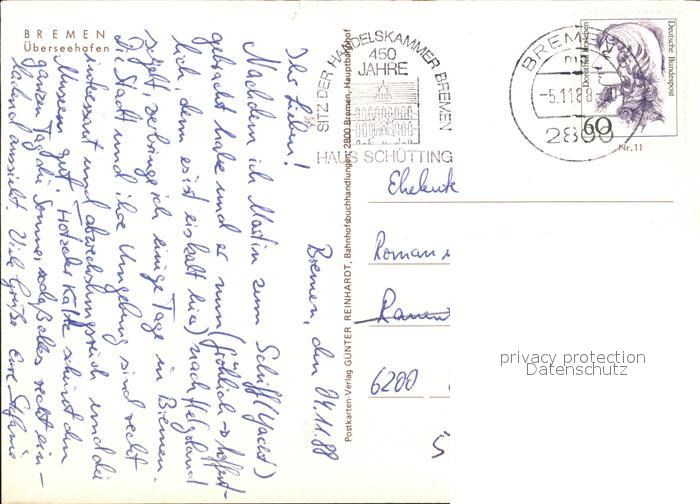 BREMEN
Überseehafen
Bremen, den 04.11.88
Ihr Lieben!
Nachdem ich Martin zum Schiff (Yacht)
gebracht habe und er nun (fröhlich → hoffent-
lich, denn es ist eiskalt hier) nach Helgoland
segelt, verbringe ich einige Tage in Bremen.
Die Stadt und ihre Umgebung sind recht
interessant und abwechslungsreich und die
Museen gut. Trotz der Kälte scheint den
ganzen Tag die Sonne, sodaß alles recht ein-
ladend aussieht. Viele Grüße Eure Stefanie
Postkarten-Verlag GÜNTER REINHARDT, Bahnhofsbuchhandlungen, 2800 Bremen, Hauptbahnhof
SITZ DER HANDELSKAMMER BREMEN
450
JAHRE
HAUS SCHÜTTING
BREMEN
-5.11.88
2800
Deutsche Bundespost
60
Nr. 11
Eheleute
Roman
6200
privacy protection
Datenschutz